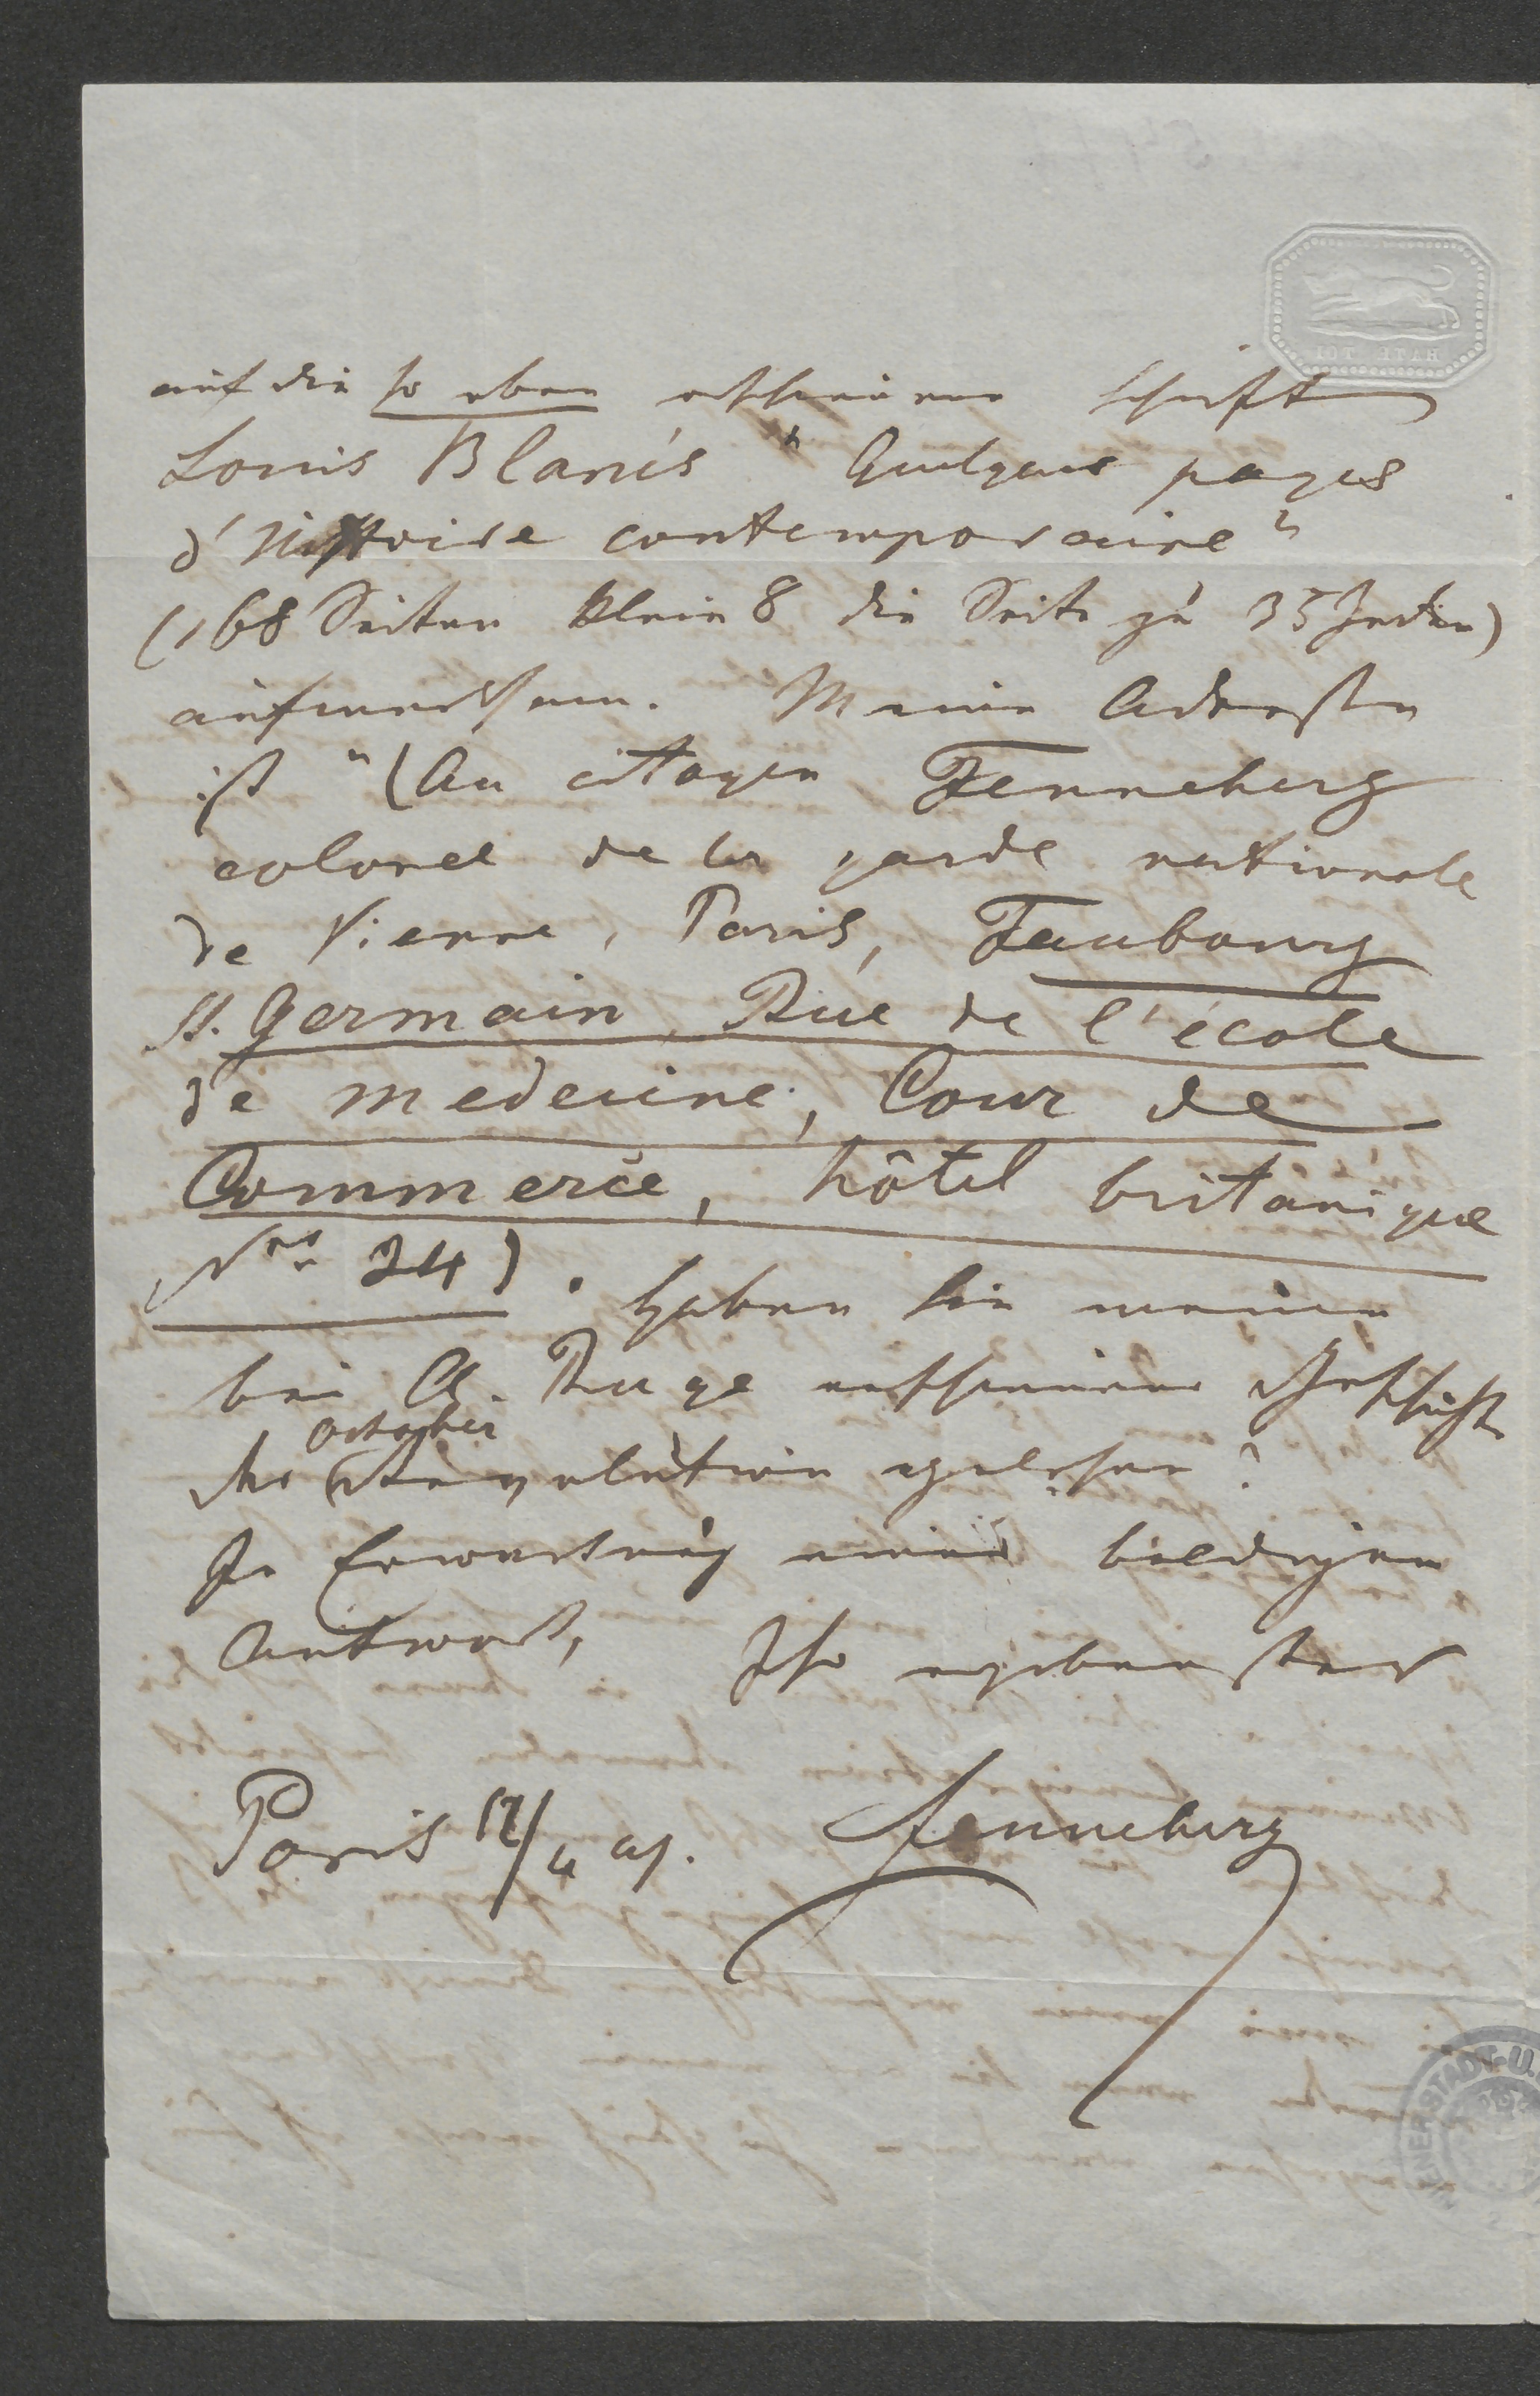 auf die so eben erschienene Schrift
Louis Blanc's "Quelques pages
d'histoire contemporaine"
(168 Seiten klein 8 die Seite zu 35 Zeilen)
aufmerksam. Meine Adresse
ist "(Au citoyen Fenneberg
colonel de la garde nationale
de Vienne, Paris, Faubourg
St. Germain, Rue de l'école
de medecine, Cour de
Commerce, hôtel britanique
Nro 24). Haben Sie meine
bei A. Ruge erschienene Geschichte
october
der Revolution gelesen?
In Erwartung einer baldigen
Antwort, Ihr ergebenster
Paris 12/4 49. Fenneberg
HATE TOI
WIENER STADT-U.